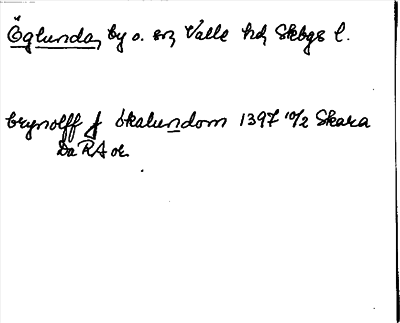 Öglunda, by o. sn, Valle hd, Skbgs l.
brynolff j økalundom 1397 10/2 Skara
Da RA or.